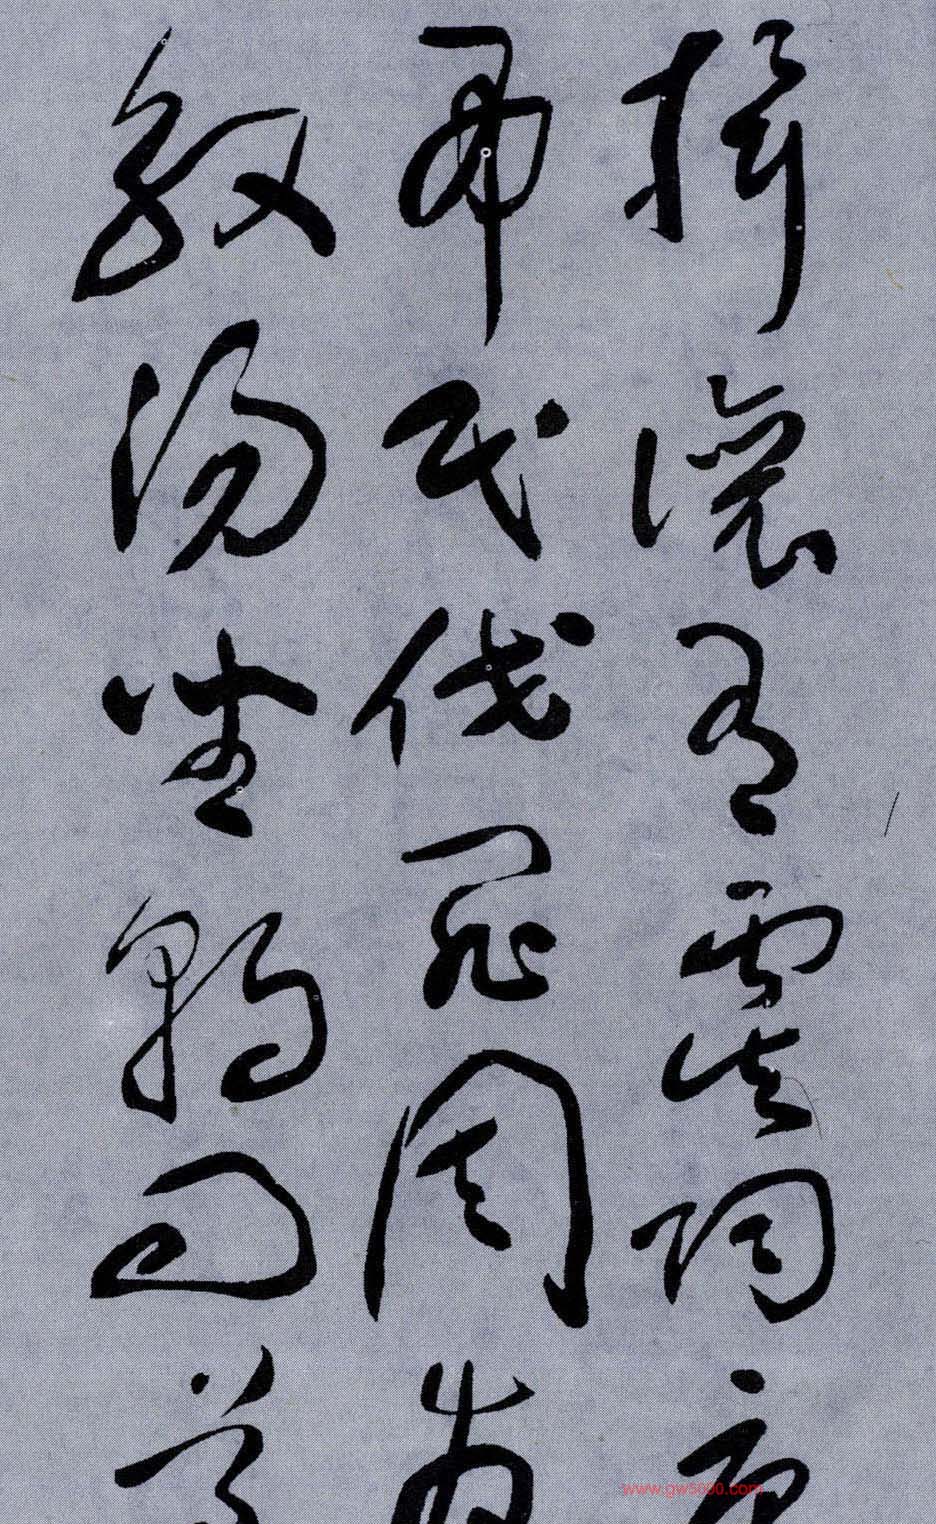 推位讓國有虞陶唐
弔民伐罪周發
殷湯坐朝問道
www.gw5000.com